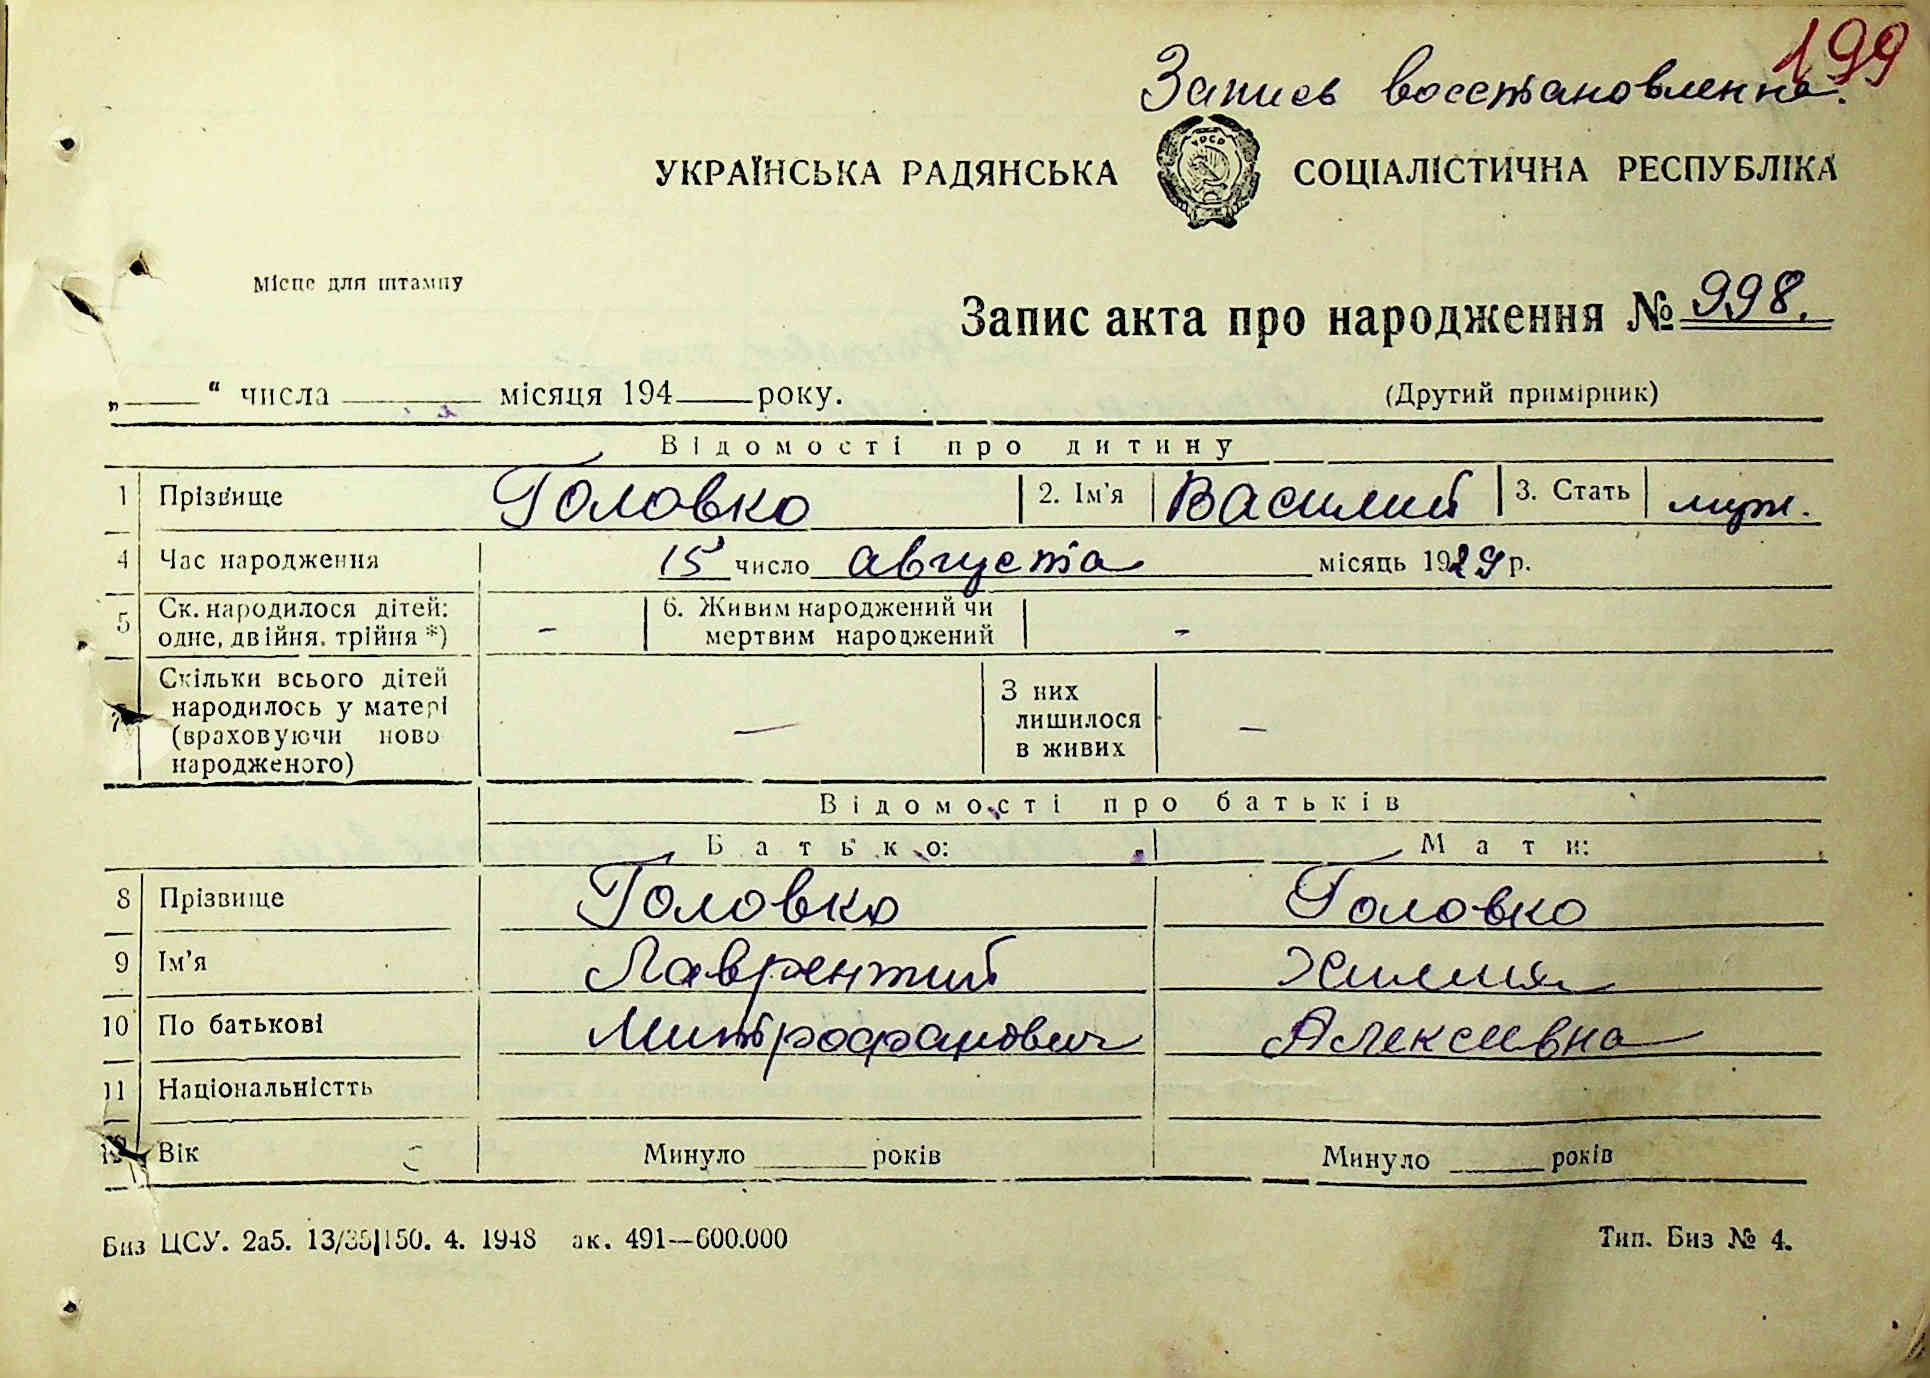 199
Запись восстановленна.
УКРАЇНСЬКА РАДЯНСЬКА СОЦІАЛІСТИЧНА РЕСПУБЛІКА
УРСР
Місце для штампу
Запис акта про народження № 998.
„____“ числа ________ місяця 194____ року. (Другий примірник)
Відомості про дитину
1 Прізвище Головко 2. Ім'я Василий 3. Стать муж.
4 Час народження 15 число августа місяць 1929 р.
5 Ск. народилося дітей: одне, двійня, трійня *) - 6. Живим народжений чи мертвим народжений -
7 Скільки всього дітей народилось у матері (враховуючи ново народженого) — З них лишилося в живих —
Відомості про батьків
Батько: Мати:
8 Прізвище Головко Головко
9 Ім'я Лаврентий
10 По батькові Митрофанович Алексеевна
11 Національністть
12 Вік Минуло ______ років Минуло ______ років
Биз ЦСУ. 2а5. 13/35|150. 4. 1948 ак. 491—600.000 Тип. Биз № 4.